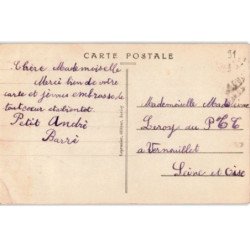 CARTE POSTALE
91
Chère Mademoiselle
Merci bien de votre
carte et je vous embrasse de
tout cœur
Petit André
Barré
Mademoiselle Madeleine
Leroy au P.T.T
à Vernouillet
Seine et Oise